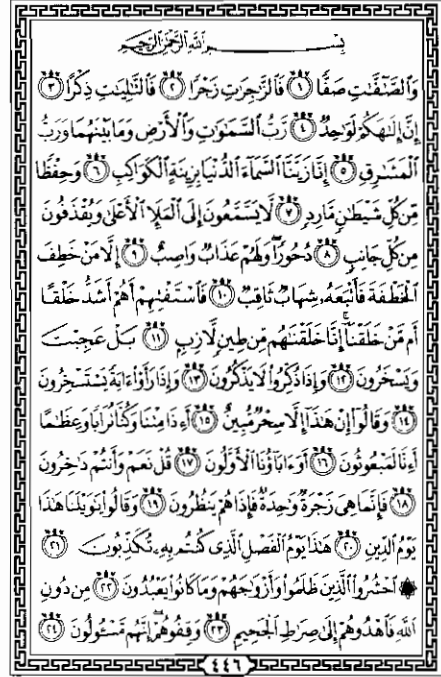 بِسْمِ ٱللَّهِ ٱلرَّحْمَٰنِ ٱلرَّحِيمِ
وَٱلصَّٰٓفَّٰتِ صَفًّا ١ فَٱلزَّٰجِرَٰتِ زَجْرًا ٢ فَٱلتَّٰلِيَٰتِ ذِكْرًا ٣
إِنَّ إِلَٰهَكُمْ لَوَٰحِدٌ ٤ رَّبُّ ٱلسَّمَٰوَٰتِ وَٱلْأَرْضِ وَمَا بَيْنَهُمَا وَرَبُّ
ٱلْمَشَٰرِقِ ٥ إِنَّا زَيَّنَّا ٱلسَّمَآءَ ٱلدُّنْيَا بِزِينَةٍ ٱلْكَوَاكِبِ ٦ وَحِفْظًا
مِّن كُلِّ شَيْطَٰنٍ مَّارِدٍ ٧ لَّا يَسَّمَّعُونَ إِلَى ٱلْمَلَإِ ٱلْأَعْلَىٰ وَيُقْذَفُونَ
مِن كُلِّ جَانِبٍ ٨ دُحُورًا وَلَهُمْ عَذَابٌ وَاصِبٌ ٩ إِلَّا مَنْ خَطِفَ
ٱلْخَطْفَةَ فَأَتْبَعَهُۥ شِهَابٌ ثَاقِبٌ ١٠ فَٱسْتَفْتِهِمْ أَهُمْ أَشَدُّ خَلْقًا
أَم مَّنْ خَلَقْنَآ ۚ إِنَّا خَلَقْنَٰهُم مِّن طِينٍ لَّازِبٍ ١١ بَلْ عَجِبْتَ
وَيَسْخَرُونَ ١٢ وَإِذَا ذُكِّرُوا۟ لَا يَذْكُرُونَ ١٣ وَإِذَا رَأَوْا۟ ءَايَةً يَسْتَسْخِرُونَ
١٤ وَقَالُوٓا۟ إِنْ هَٰذَآ إِلَّا سِحْرٌ مُّبِينٌ ١٥ أَءِذَا مِتْنَا وَكُنَّا تُرَابًا وَعِظَٰمًا
أَءِنَّا لَمَبْعُوثُونَ ١٦ أَوَءَابَآؤُنَا ٱلْأَوَّلُونَ ١٧ قُلْ نَعَمْ وَأَنتُمْ دَٰخِرُونَ
١٨ فَإِنَّمَا هِىَ زَجْرَةٌ وَٰحِدَةٌ فَإِذَا هُمْ يَنظُرُونَ ١٩ وَقَالُوا۟ يَٰوَيْلَنَا هَٰذَا
يَوْمُ ٱلدِّينِ ٢٠ هَٰذَا يَوْمُ ٱلْفَصْلِ ٱلَّذِى كُنتُم بِهِۦ تُكَذِّبُونَ ٢١
۞ ٱحْشُرُوا۟ ٱلَّذِينَ ظَلَمُوا۟ وَأَزْوَٰجَهُمْ وَمَا كَانُوا۟ يَعْبُدُونَ ٢٢ مِن دُونِ
ٱللَّهِ فَٱهْدُوهُمْ إِلَىٰ صِرَٰطِ ٱلْجَحِيمِ ٢٣ وَقِفُوهُمْ ۖ إِنَّهُم مَّسْـُٔولُونَ ٢٤
٤٤٦